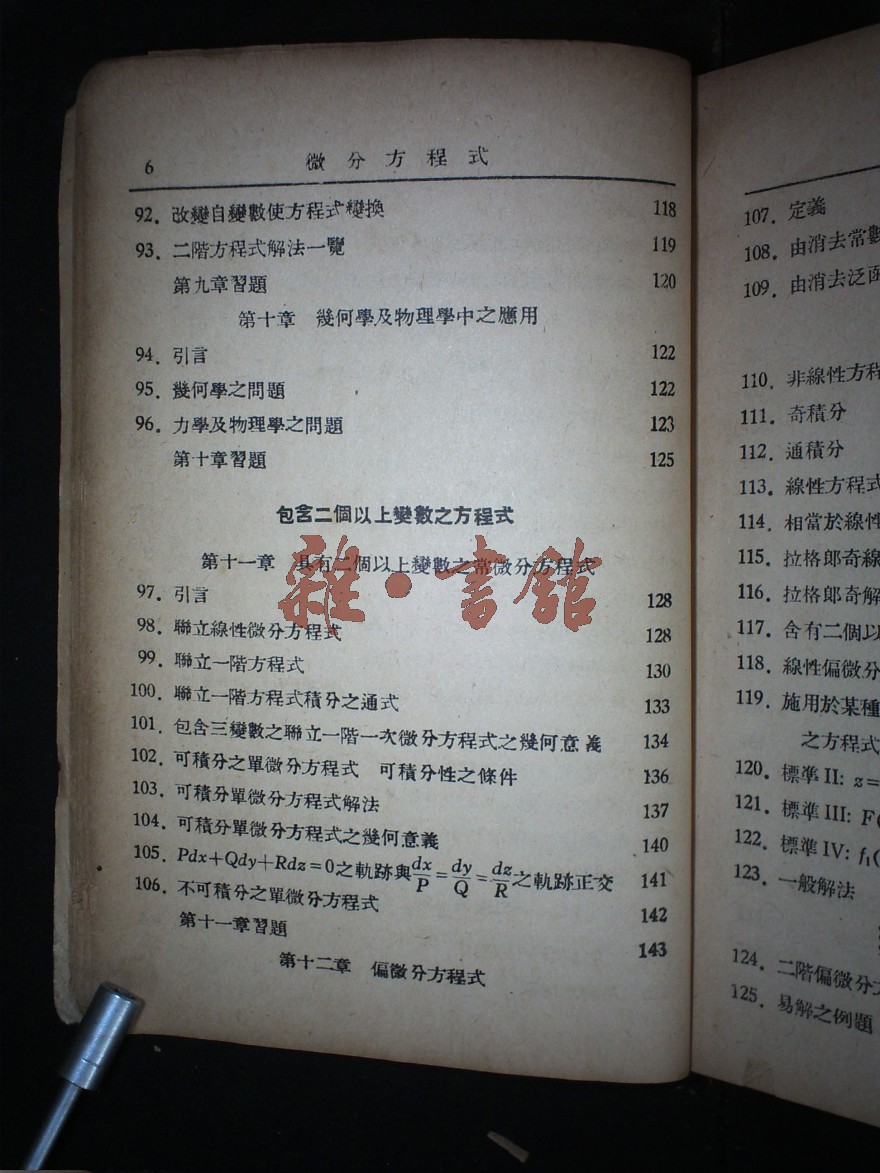 6 微分方程式
92. 改變自變數使方程式變換 118
93. 二階方程式解法一覽 119
第九章習題 120
第十章 幾何學及物理學中之應用
94. 引言 122
95. 幾何學之問題 122
96. 力學及物理學之問題 123
第十章習題 125
包含二個以上變數之方程式
第十一章 具有二個以上變數之常微分方程式
雜·書館
97. 引言 128
98. 聯立線性微分方程式 128
99. 聯立一階方程式 130
100. 聯立一階方程式積分之通式 133
101. 包含三變數之聯立一階一次微分方程式之幾何意義 134
102. 可積分之單微分方程式 可積分性之條件 136
103. 可積分單微分方程式解法 137
104. 可積分單微分方程式之幾何意義 140
105. Pdx+Qdy+Rdz=0之軌跡與dx/P=dy/Q=dz/R之軌跡正交 141
106. 不可積分之單微分方程式 142
第十一章習題 143
第十二章 偏微分方程式
107. 定義
108. 由消去常數
109. 由消去泛函
110. 非線性方程
111. 奇積分
112. 通積分
113. 線性方程式
114. 相當於線性
115. 拉格郎奇線
116. 拉格郎奇解
117. 含有二個以
118. 線性偏微分
119. 施用於某種
之方程式
120. 標準 II: z=
121. 標準 III: F(
122. 標準 IV: f₁(
123. 一般解法
124. 二階偏微分
125. 易解之例題